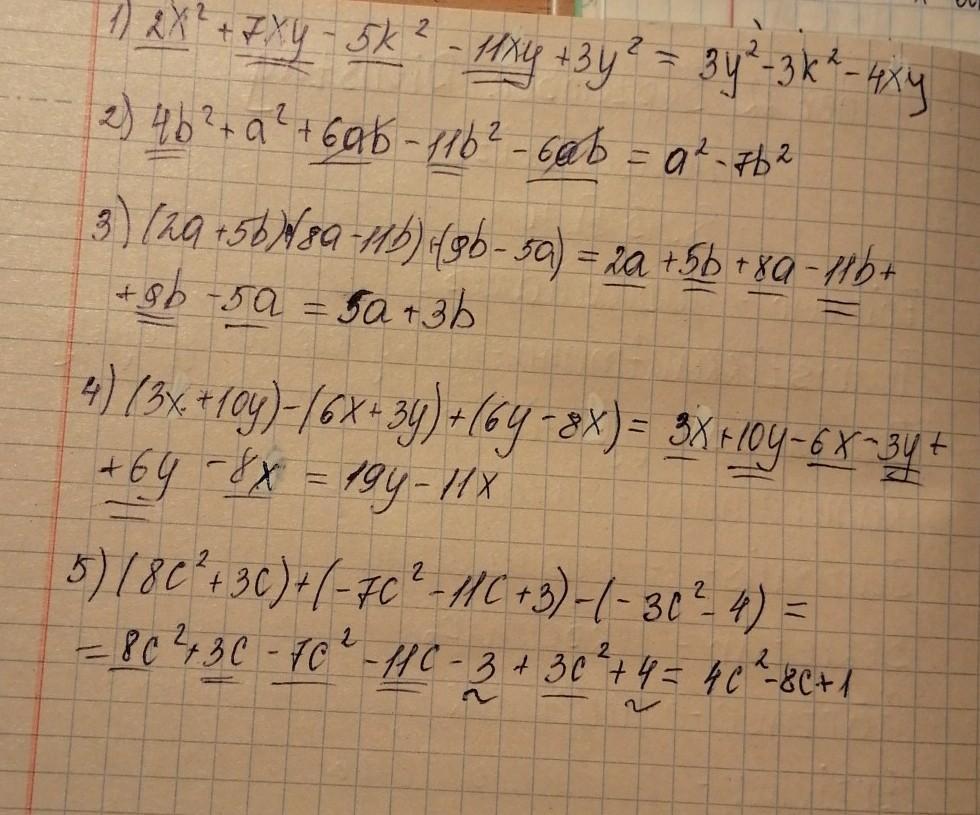 1) 2x² + 7xy - 5k² - 11xy + 3y² = 3y² - 3k² - 4xy
2) 4b² + a² + 6ab - 11b² - 6ab = a² - 7b²
3) (2a + 5b)+(8a - 11b)+(9b - 5a) = 2a + 5b + 8a - 11b +
+ 9b - 5a = 5a + 3b
4) (3x + 10y) - (6x + 3y) + (6y - 8x) = 3x + 10y - 6x - 3y +
+ 6y - 8x = 19y - 11x
5) (8c² + 3c) + (-7c² - 11c + 3) - (-3c² - 4) =
= 8c² + 3c - 7c² - 11c - 3 + 3c² + 4 = 4c² - 8c + 1